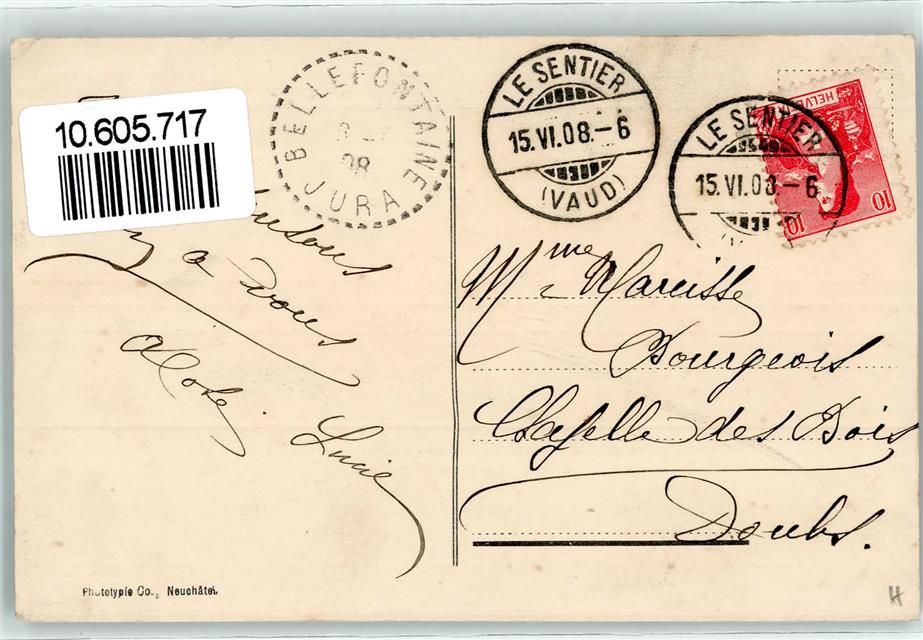 10.605.717
BELLEFONTAINE
08
JURA
LE SENTIER
15.VI.08.-6
(VAUD)
LE SENTIER
15.VI.08.-6
HELVE
10
10
à vous
Lucie
Mme Narcisse
Bourgeois
Chapelle des Bois
Doubs.
Phototypie Co., Neuchâtel
H